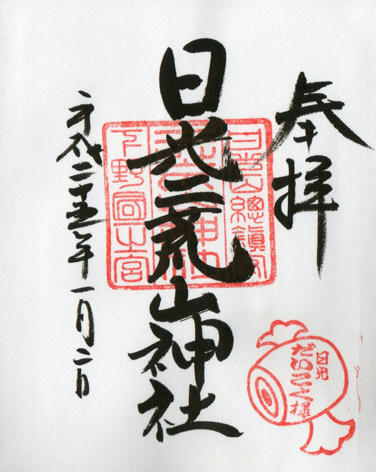 奉拝
日光二荒山神社
平成二十五年一月二日
日光山總鎮守
下野國一宮
日光
だいこく様